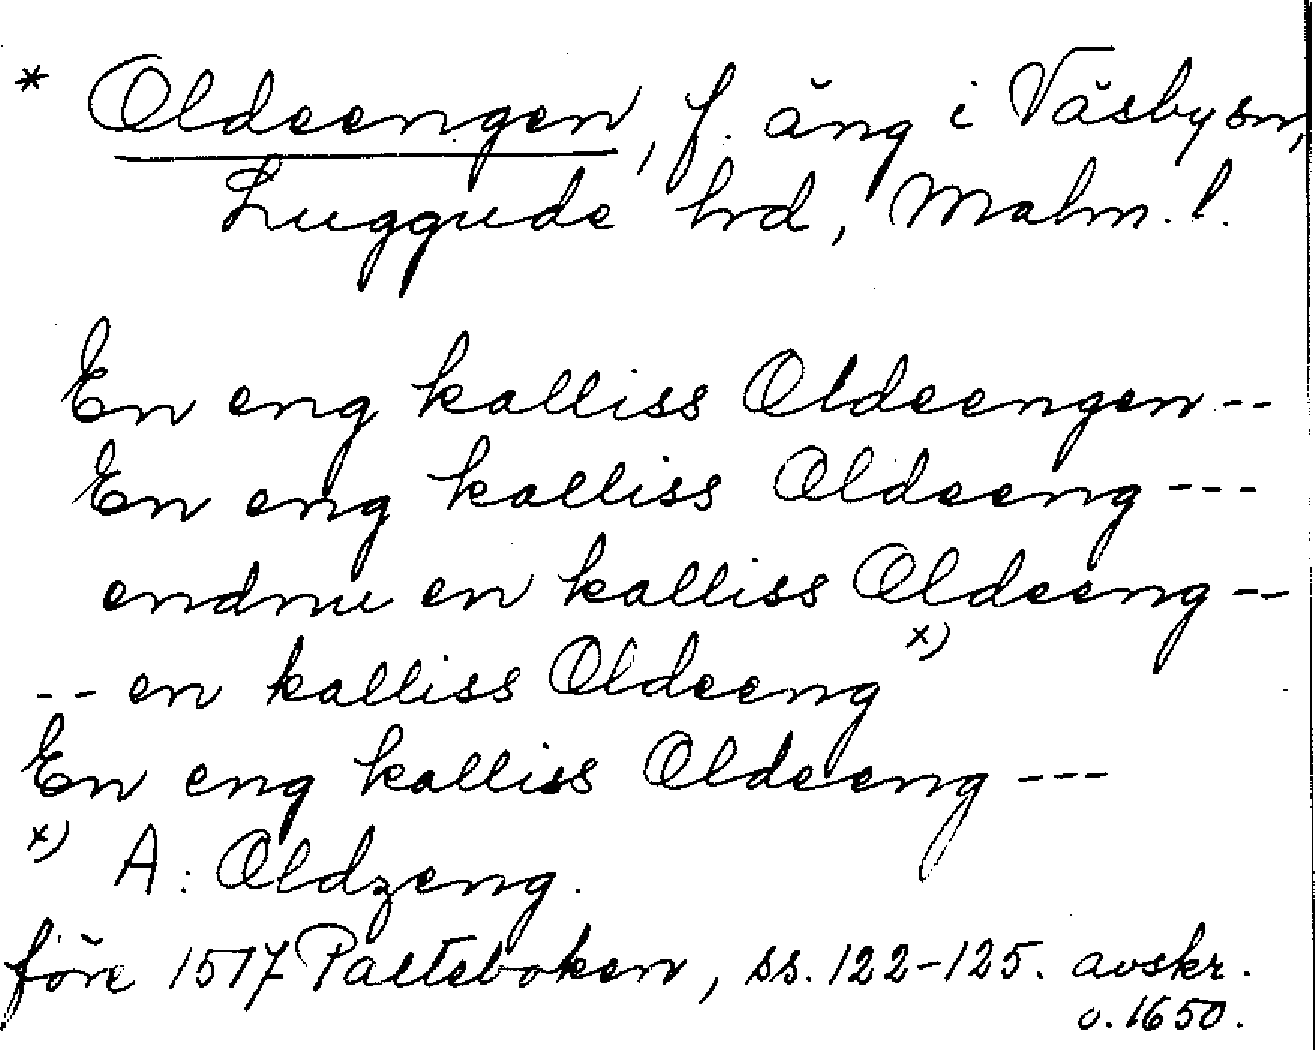 * Oldeengen, f. äng i Väsby sn,
Luggude hrd, Malm. l.
En eng kalliss Oldeengen --
En eng kalliss Oldeeng ---
endnu en kalliss Oldeeng --
-- en kalliss Oldeeng x)
En eng kalliss Oldeeng ---
x) A: Oldzeng.
före 1517 Palteboken, ss. 122-125. avskr.
o. 1650.